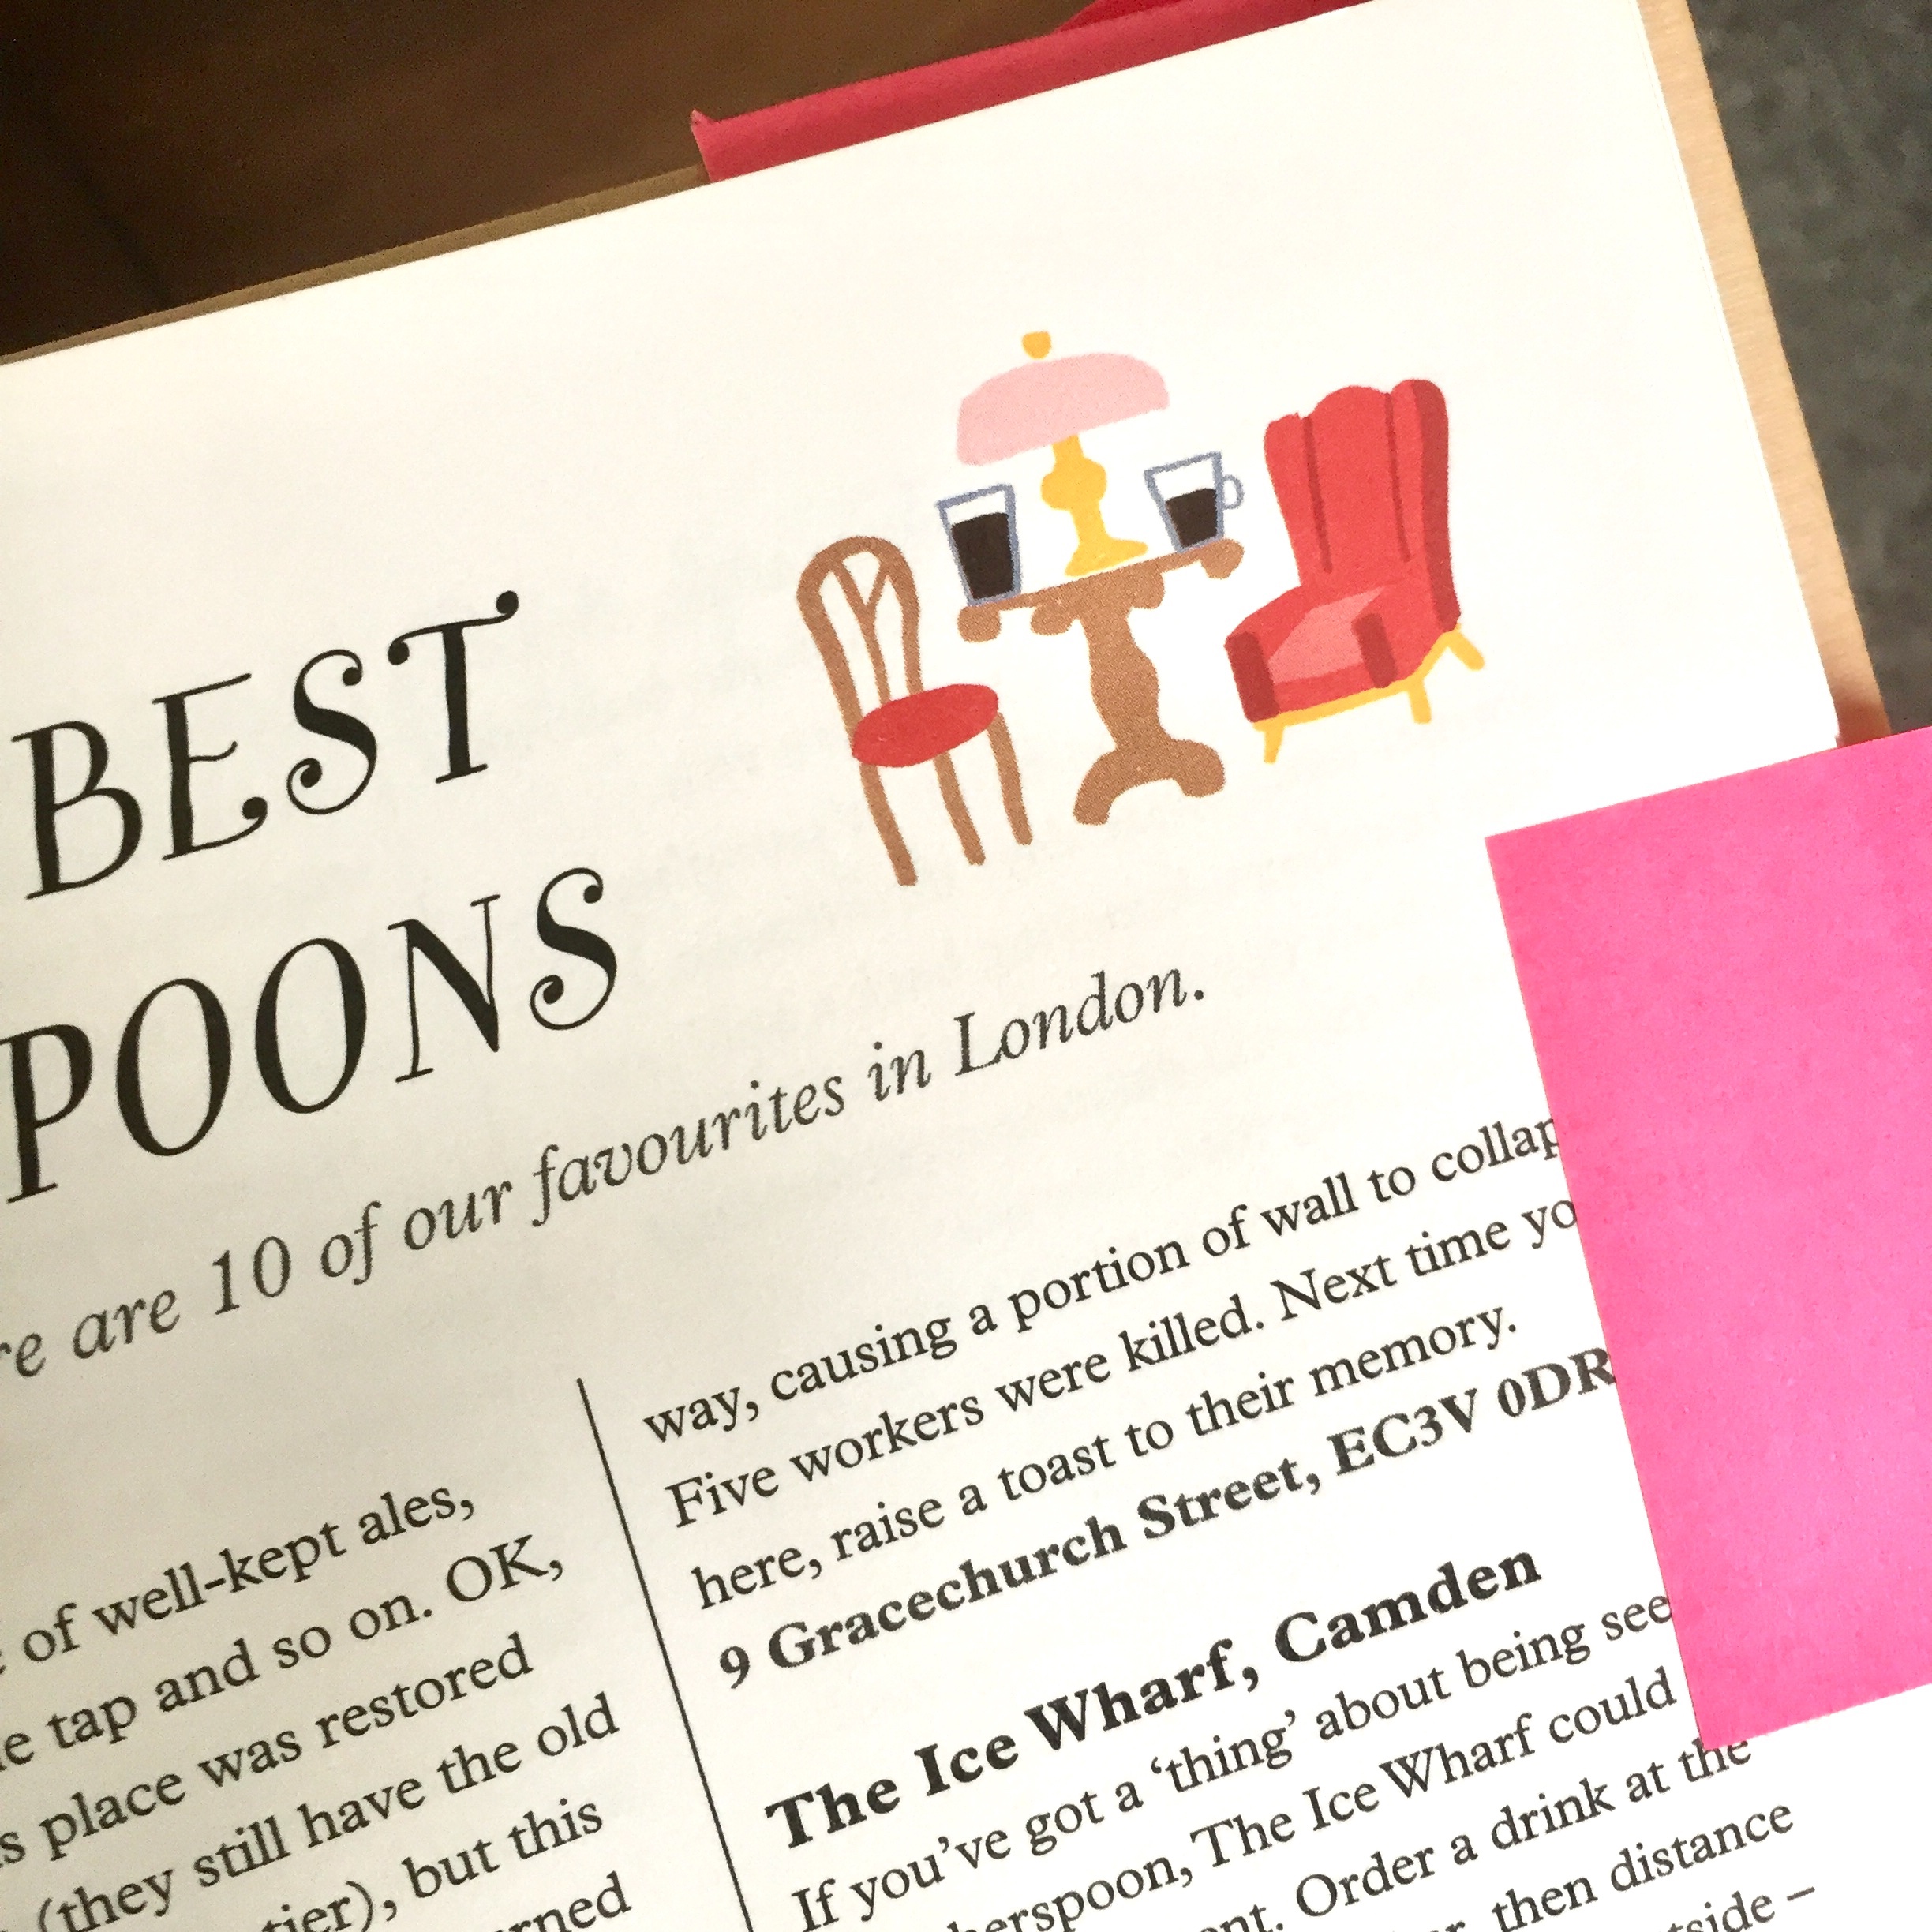 BEST
POONS
re are 10 of our favourites in London.
of well-kept ales,
e tap and so on. OK,
s place was restored
(they still have the old
tier), but this
rned
way, causing a portion of wall to collap
Five workers were killed. Next time yo
here, raise a toast to their memory.
9 Gracechurch Street, EC3V 0DR
The Ice Wharf, Camden
If you've got a ‘thing’ about being see
herspoon, The Ice Wharf could
nt. Order a drink at the
then distance
tside –